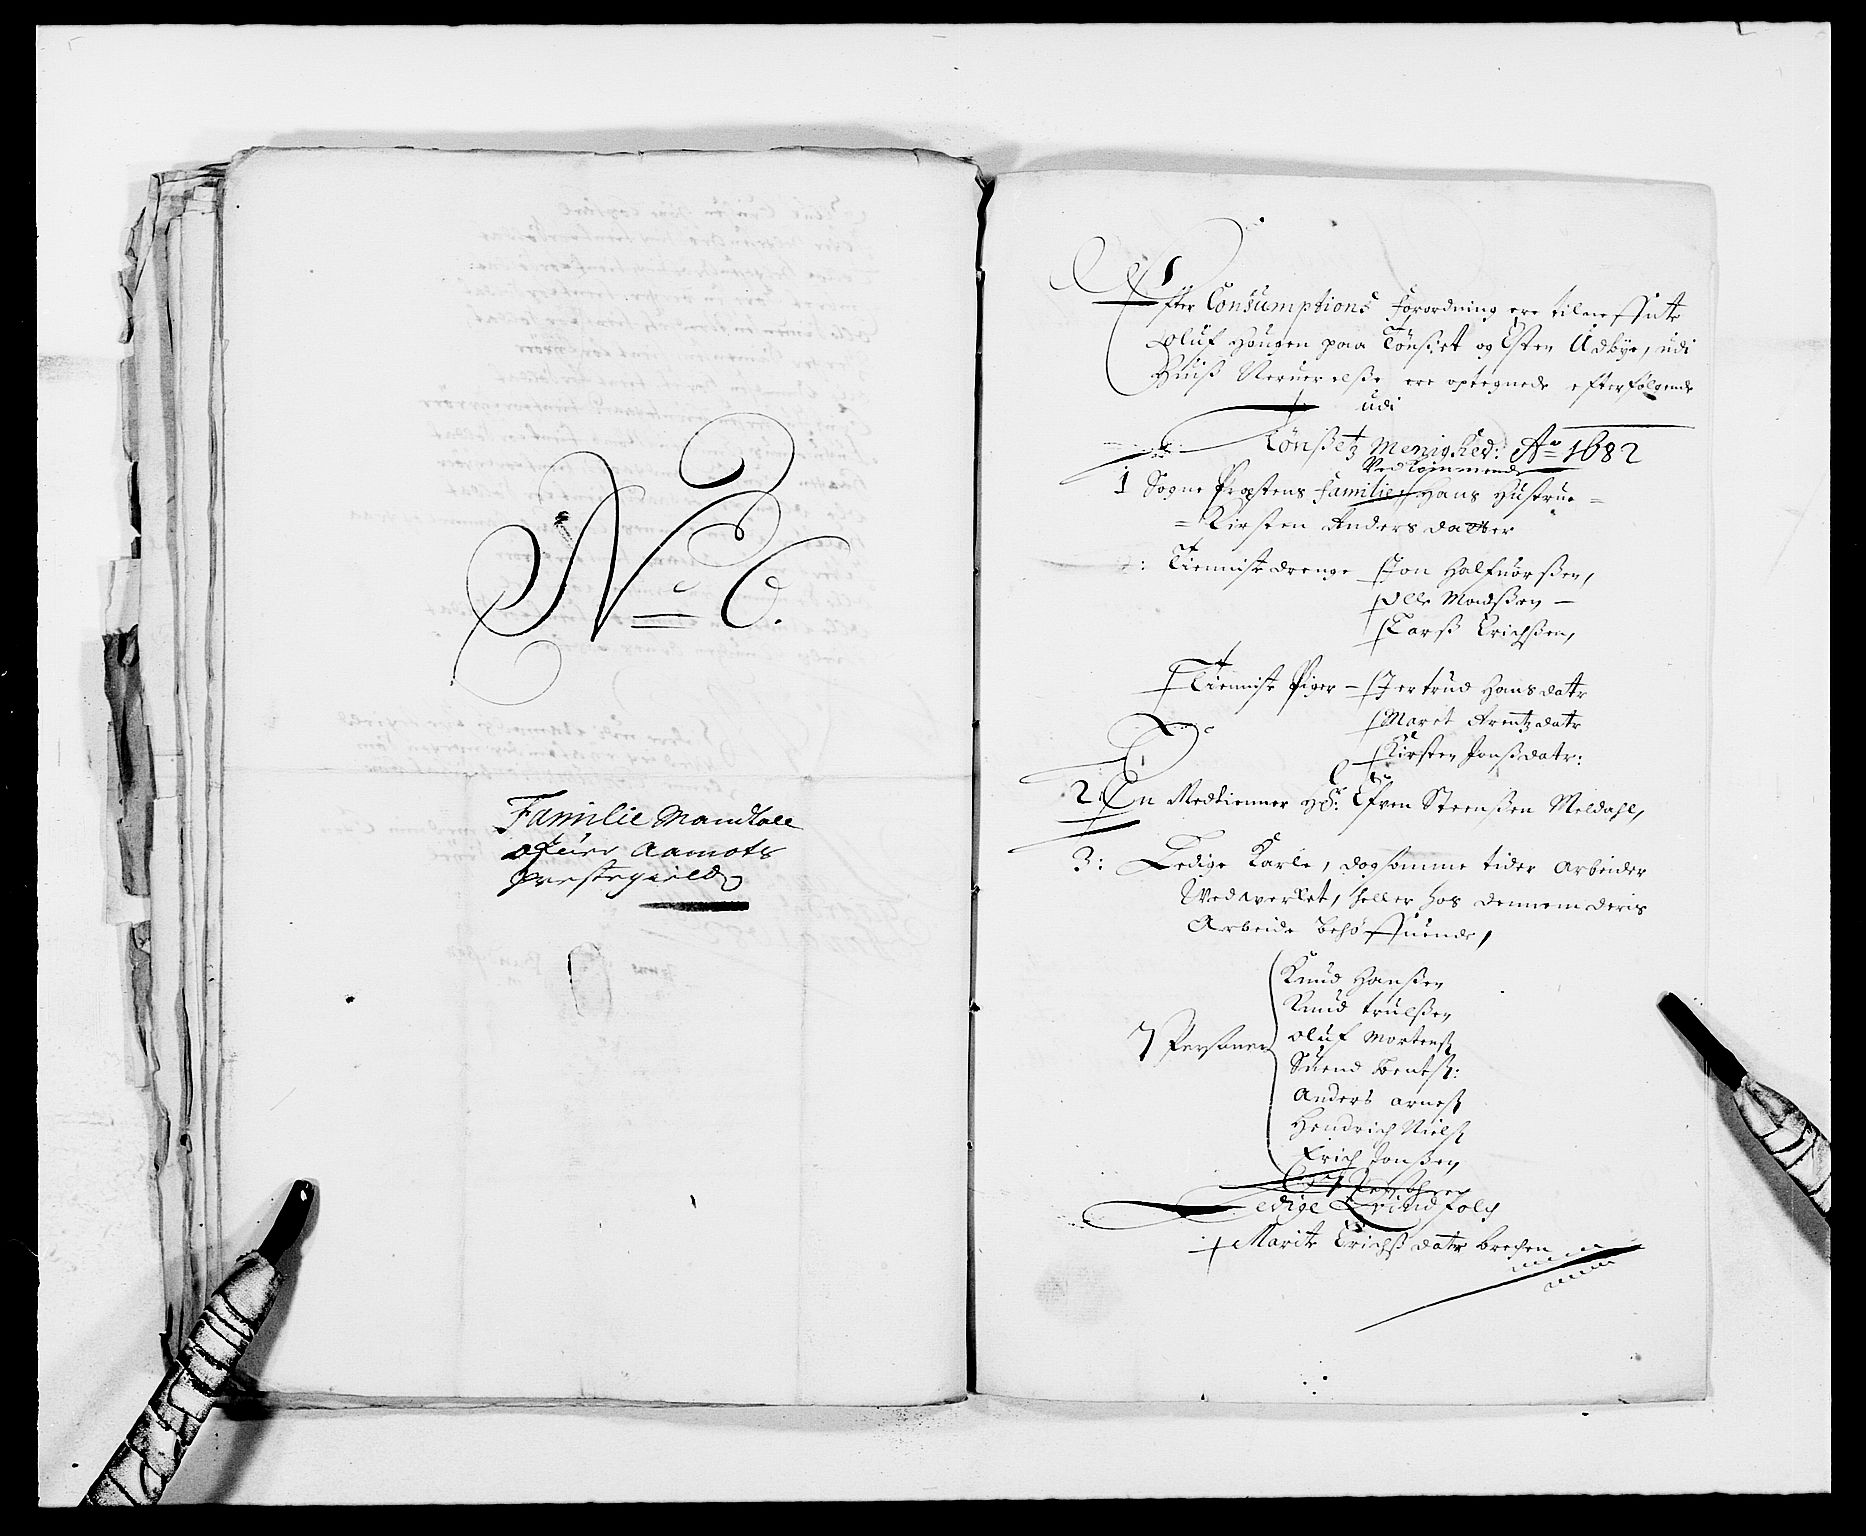 No 6.
Familie Mandtall
ofuer Aamots
prestegield
Efter Consumptions Forordning ere tilneffnte
Oluf Hougen paa Tønset og Esten Udbye, udi
Huis Neruerelsse ere optegnede efterfølgende
udi
Tønsetz Menighed: Ao 1682
Vedkommende
1 Sogne Prestens Familie, Hans Hustrue =
= Kirsten Anders datter
: Tienniste drenge - Jon Halfuorsen,
Olle Madsen -
Lars Erichsen,
Tienniste Piger - Jertrud Hans datr
Marit Arentz datr
Kirsten Jonsdatr:
2. En Medtienner Hr: Efven Steensen Meldahl,
3: Ledige Karle, dog somme tider Arbeider
Ved Verket, heller hos dennem deris
Arbeide behøffuende,
7 Personer
Knud Hansen
Knud Trulsen
Oluf Mortens
Suend Bents:
Anders Arnes
Hendrich Niels
Erich Jonsen
Ledige Quindfolch
Marite Erichs datr